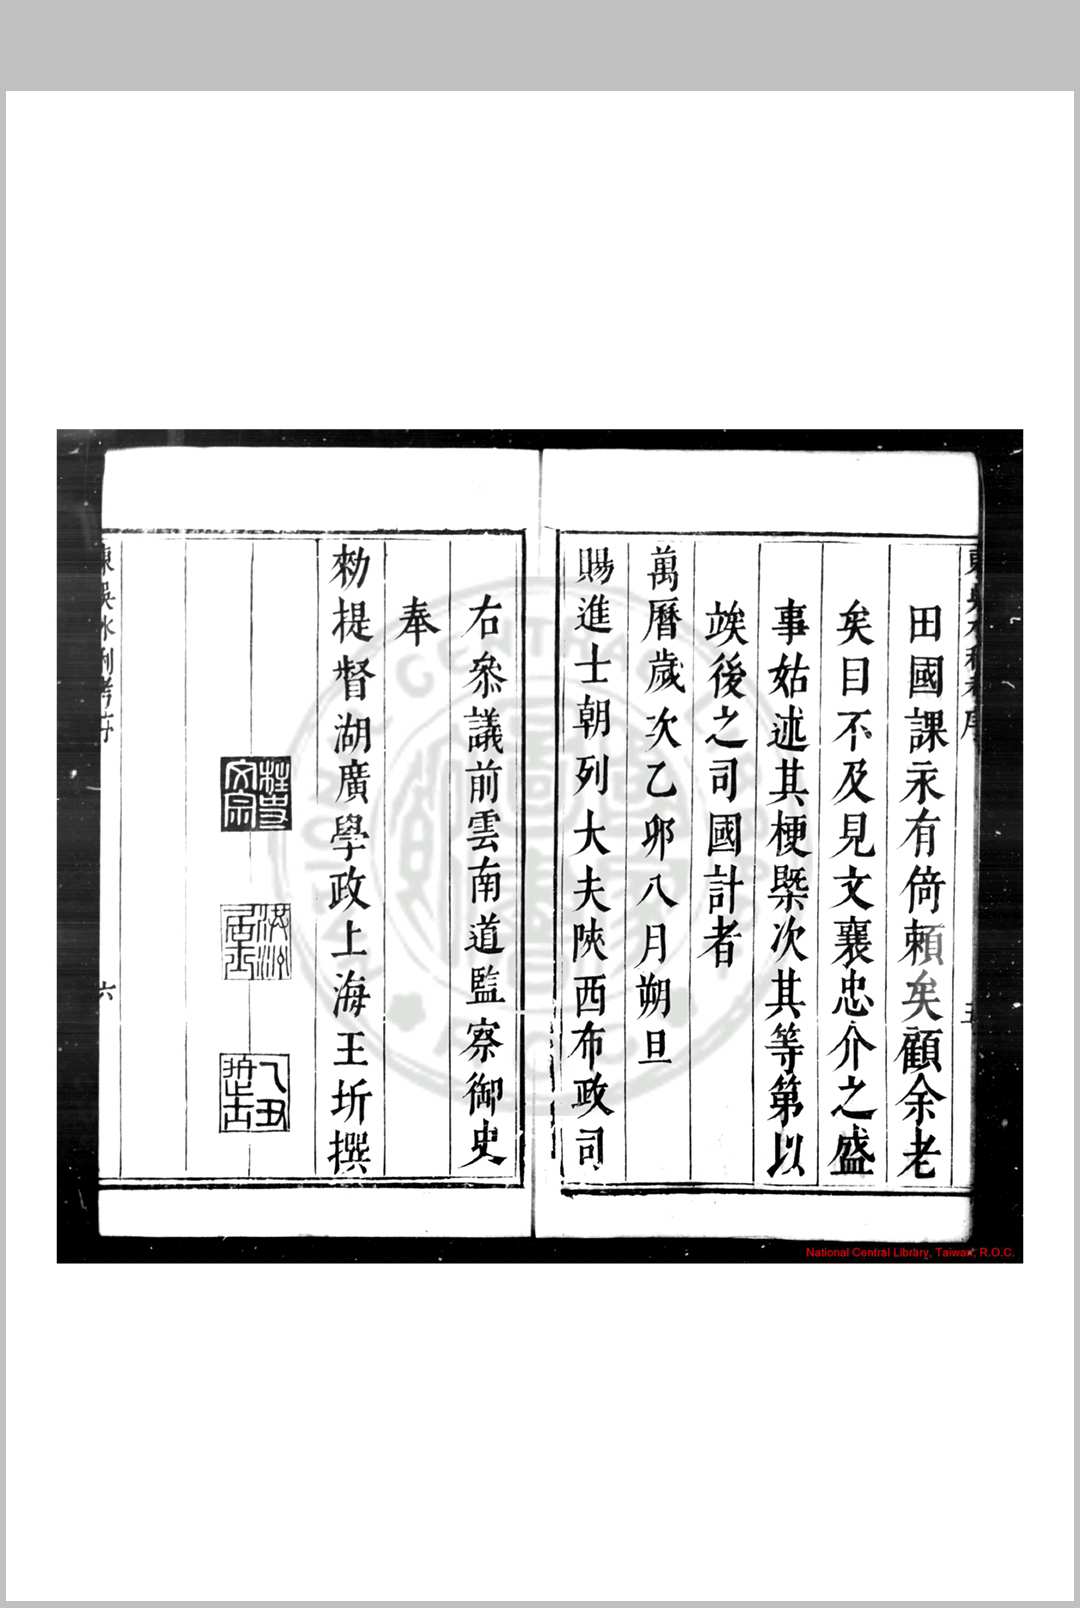 田國課永有倚賴矣顧余老
矣目不及見文襄忠介之盛
事姑述其梗槩次其等第以
竢後之司國計者
萬曆歲次乙卯八月朔旦
賜進士朝列大夫陜西布政司
右叅議前雲南道監察御史
奉
勑提督湖廣學政上海王圻撰
東吳水利考序
六
National Central Library, Taiwan, R.O.C.